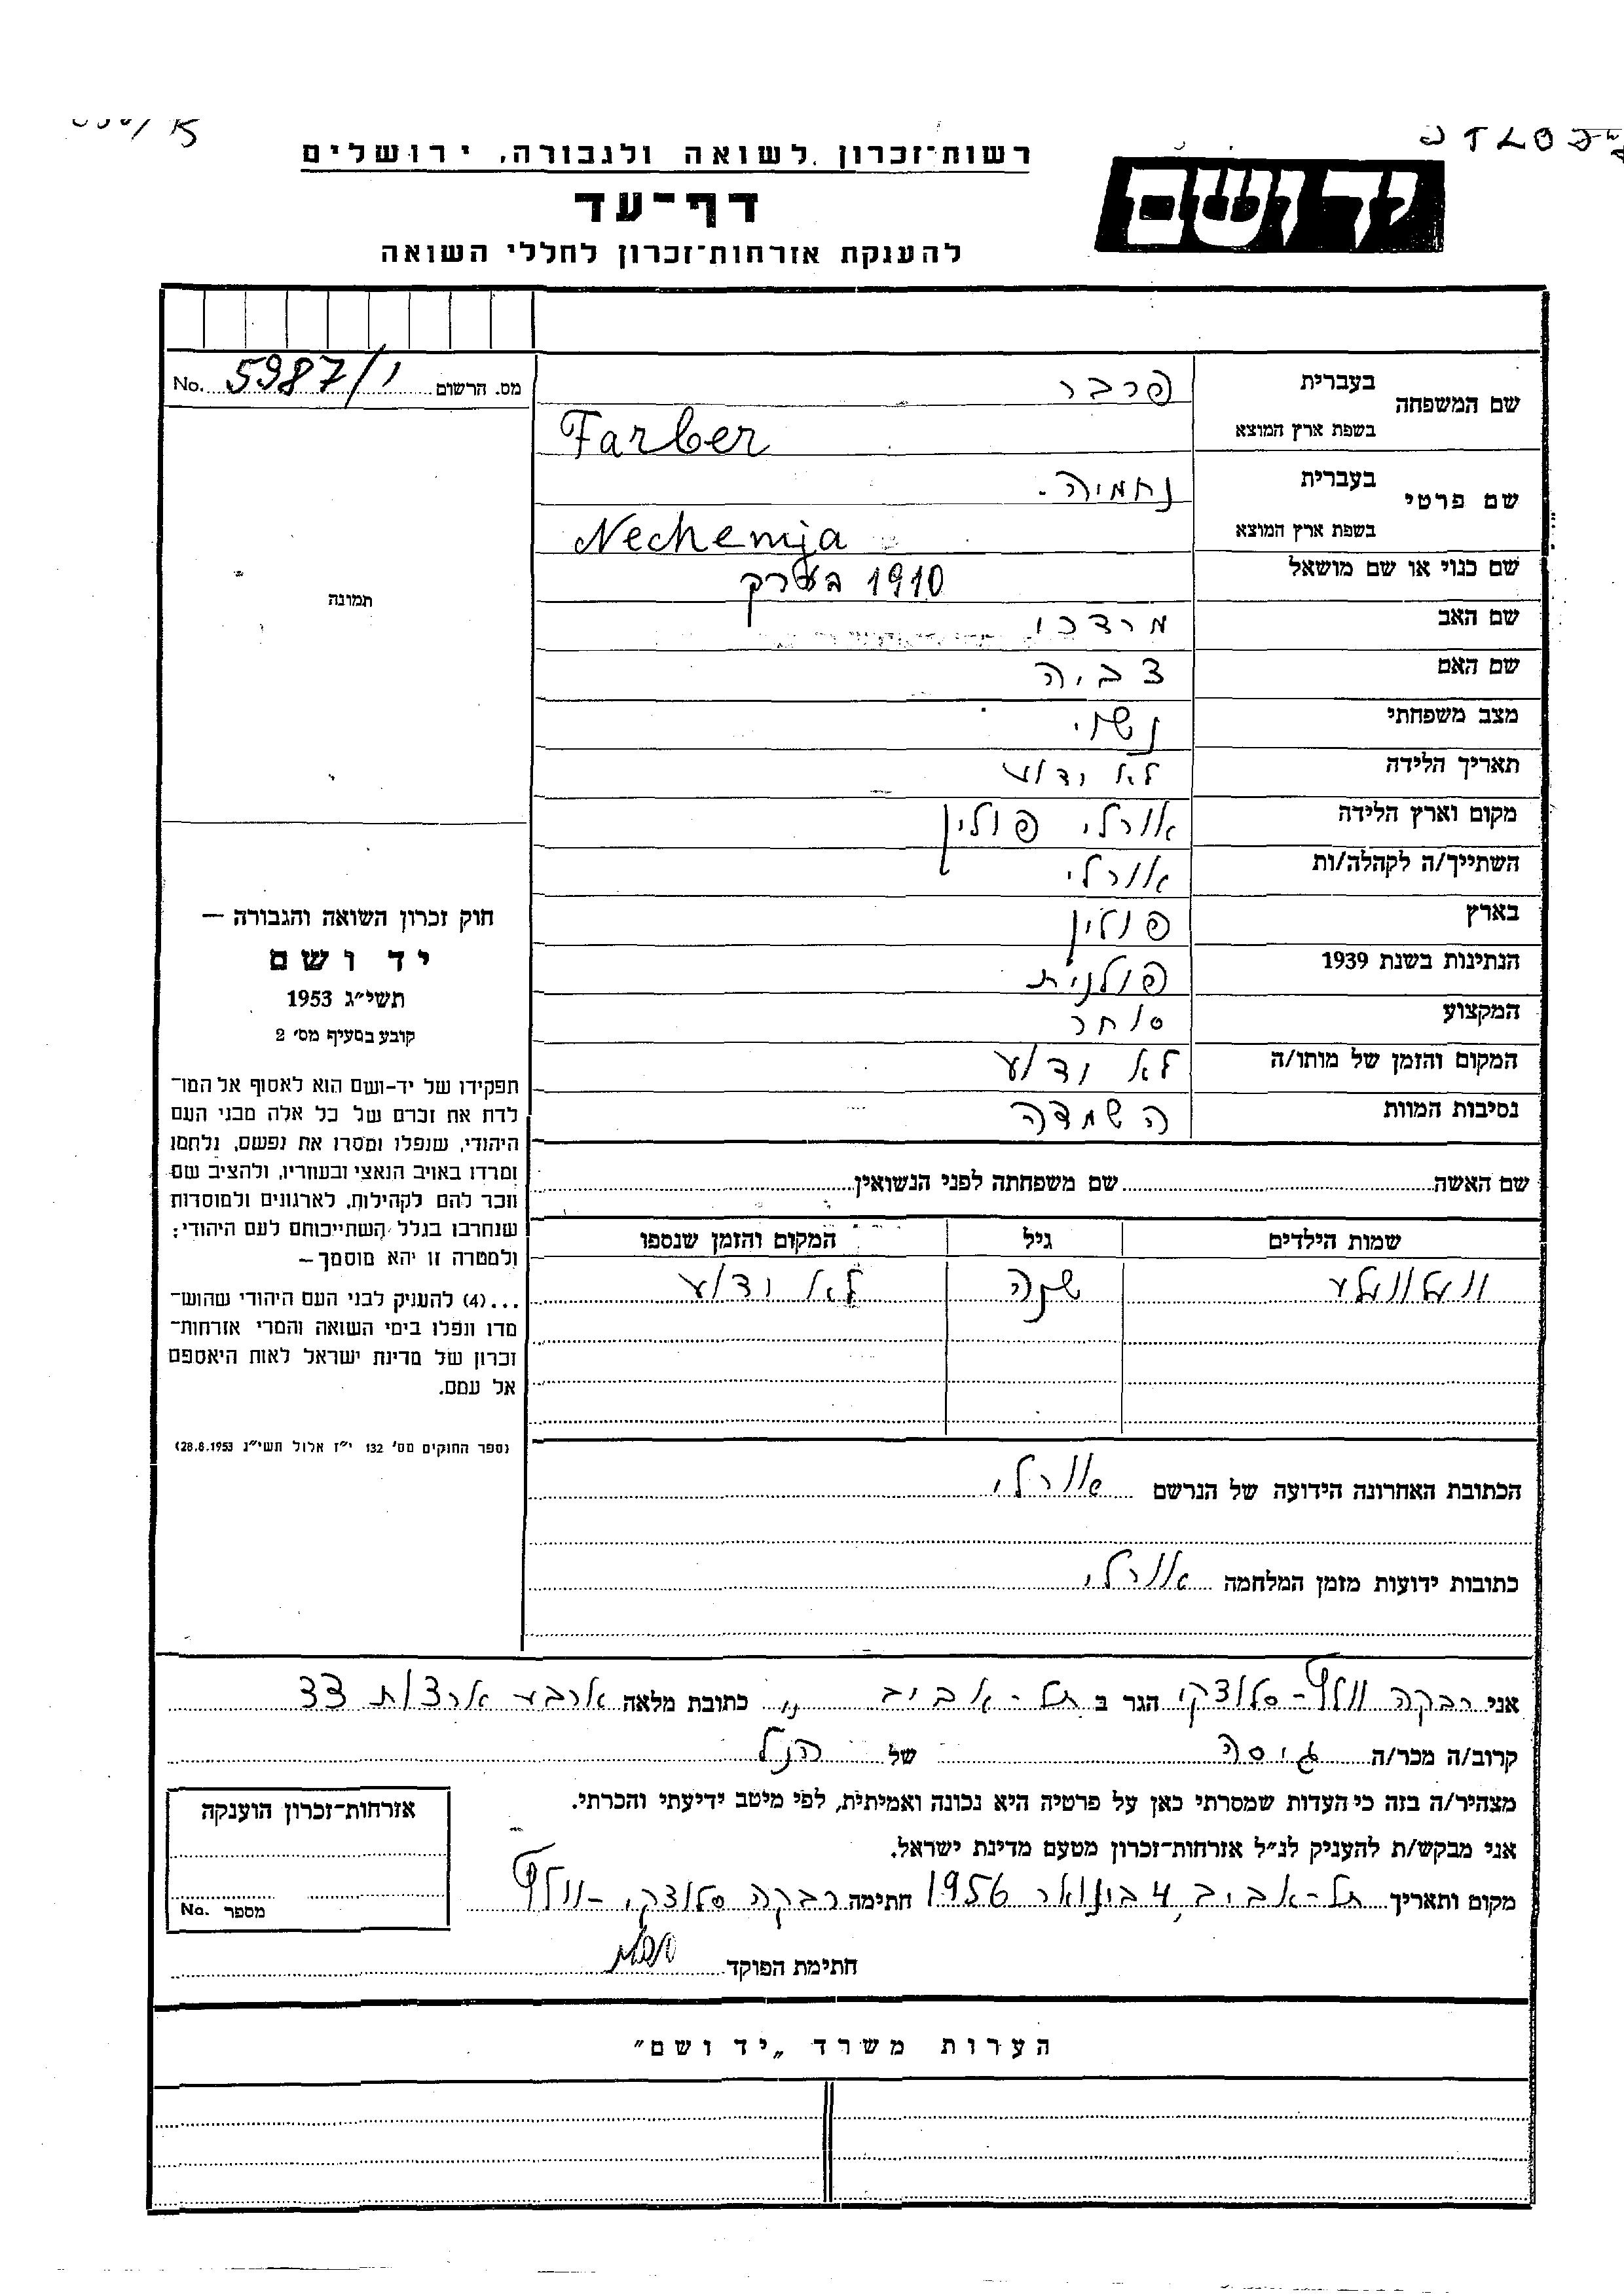 רשות־זכרון לשואה ולגבורה, ירושלים
יד ושם
דף־עד
להענקת אזרחות־זכרון לחללי השואה
מס. הרשום 5987/י No.
שם המשפחה בעברית פרבר
בשפת ארץ המוצא Farber
שם פרטי בעברית נחמיה.
בשפת ארץ המוצא Nechemja
שם כנוי או שם מושאל 1910 בערך
תמונה
שם האב מרדכי
שם האם צביה
מצב משפחתי נשוי
תאריך הלידה לא ידוע
מקום וארץ הלידה אוורלי פולין
השתייך/ה לקהלה/ות אוורלי
בארץ פולין
הנתינות בשנת 1939 פולנית
המקצוע סוחר
המקום והזמן של מותו/ה לא ידוע
נסיבות המוות השמדה
חוק זכרון השואה והגבורה —
יד ושם
תשי״ג 1953
קובע בסעיף מס׳ 2
תפקידו של יד-ושם הוא לאסוף אל המו־
לדת את זכרם של כל אלה מבני העם
היהודי, שנפלו ומסרו את נפשם, נלחמו
ומרדו באויב הנאצי ובעוזריו, ולהציב שם
וזכר להם לקהילות, לארגונים ולמוסדות
שנחרבו בגלל השתייכותם לעם היהודי;
ולמטרה זו יהא מוסמך—
...(4) להעניק לבני העם היהודי שהוש־
מדו ונפלו בימי השואה והמרי אזרחות־
זכרון של מדינת ישראל לאות היאספם
אל עמם.
(ספר החוקים מס׳ 132 י״ז אלול תשי״ג 28.8.1953)
שם האשה שם משפחתה לפני הנשואין
שמות הילדים גיל המקום והזמן שנספו
שנה לא ידוע
הכתובת האחרונה הידועה של הנרשם אוורלי
כתובות ידועות מזמן המלחמה אוורלי
אני רבקה וולף-סלודקי הגר ב תל-אביב כתובת מלאה ארבע ארצות 33
קרוב/ה מכר/ה גיסה של הנ"ל
מצהיר/ה בזה כי העדות שמסרתי כאן על פרטיה היא נכונה ואמיתית, לפי מיטב ידיעתי והכרתי.
אני מבקש/ת להעניק לנ״ל אזרחות־זכרון מטעם מדינת ישראל.
מקום ותאריך תל-אביב, 4 בינואר 1956 חתימה רבקה סלודקי-וולף
חתימת הפוקד
אזרחות־זכרון הוענקה
מספר No.
הערות משרד „יד ושם״